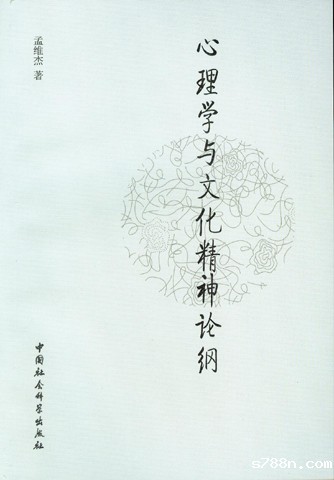 孟维杰 著
心理学与文化精神论纲
中国社会科学出版社
s788n.com